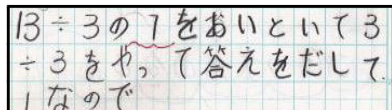 13÷3の1をおいといて3
÷3をやって答えをだして.
1なので